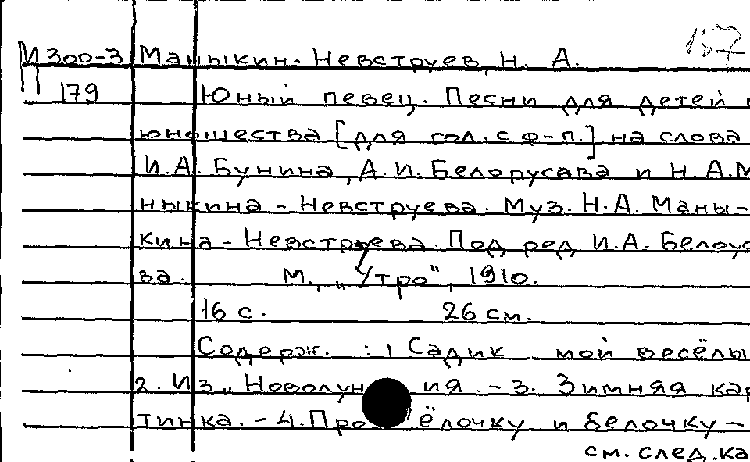 157
М 300-3 Маныкин-Невструев, Н. А.
П 179 Юный певец. Песни для детей
юношества [для гол. с ф-п.] на слова
И.А. Бунина, А.И. Белорусова и Н.А. М
ныкина - Невструева. Муз. Н.А. Маны-
кина - Невструева. Под ред И.А. Белоус
ва. М., „Утро", 1910.
16 с. 26 см.
Содерж. : 1 Садик мой весёлы
2. Из „ Новолун ия. - 3. Зимняя кар
тинка. - 4. Про ёлочку и белочку -
см. след. ка